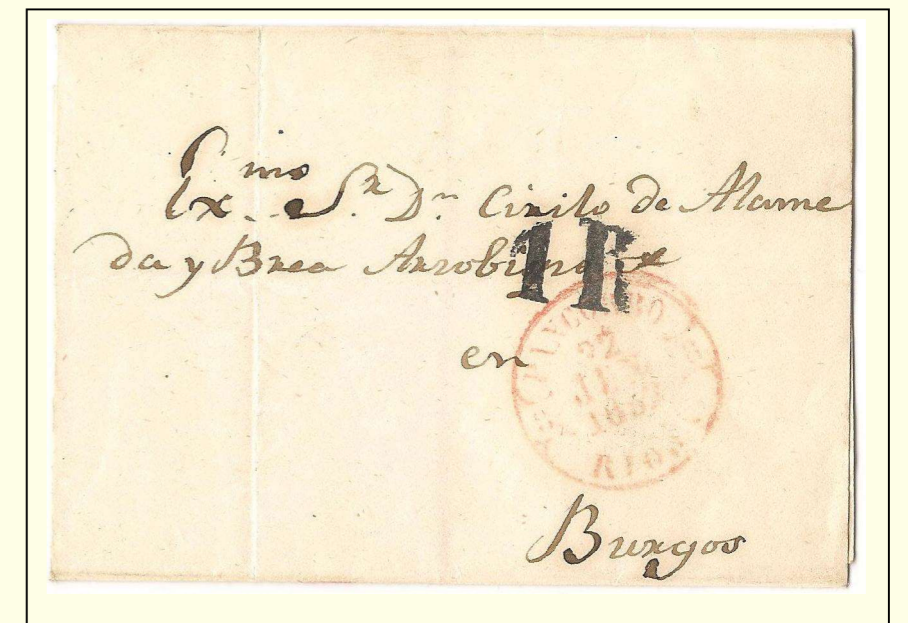 Exmo Sr Dn Cirilo de Alame
da y Brea Arzobispo
1R
en
RIOJ
Burgos